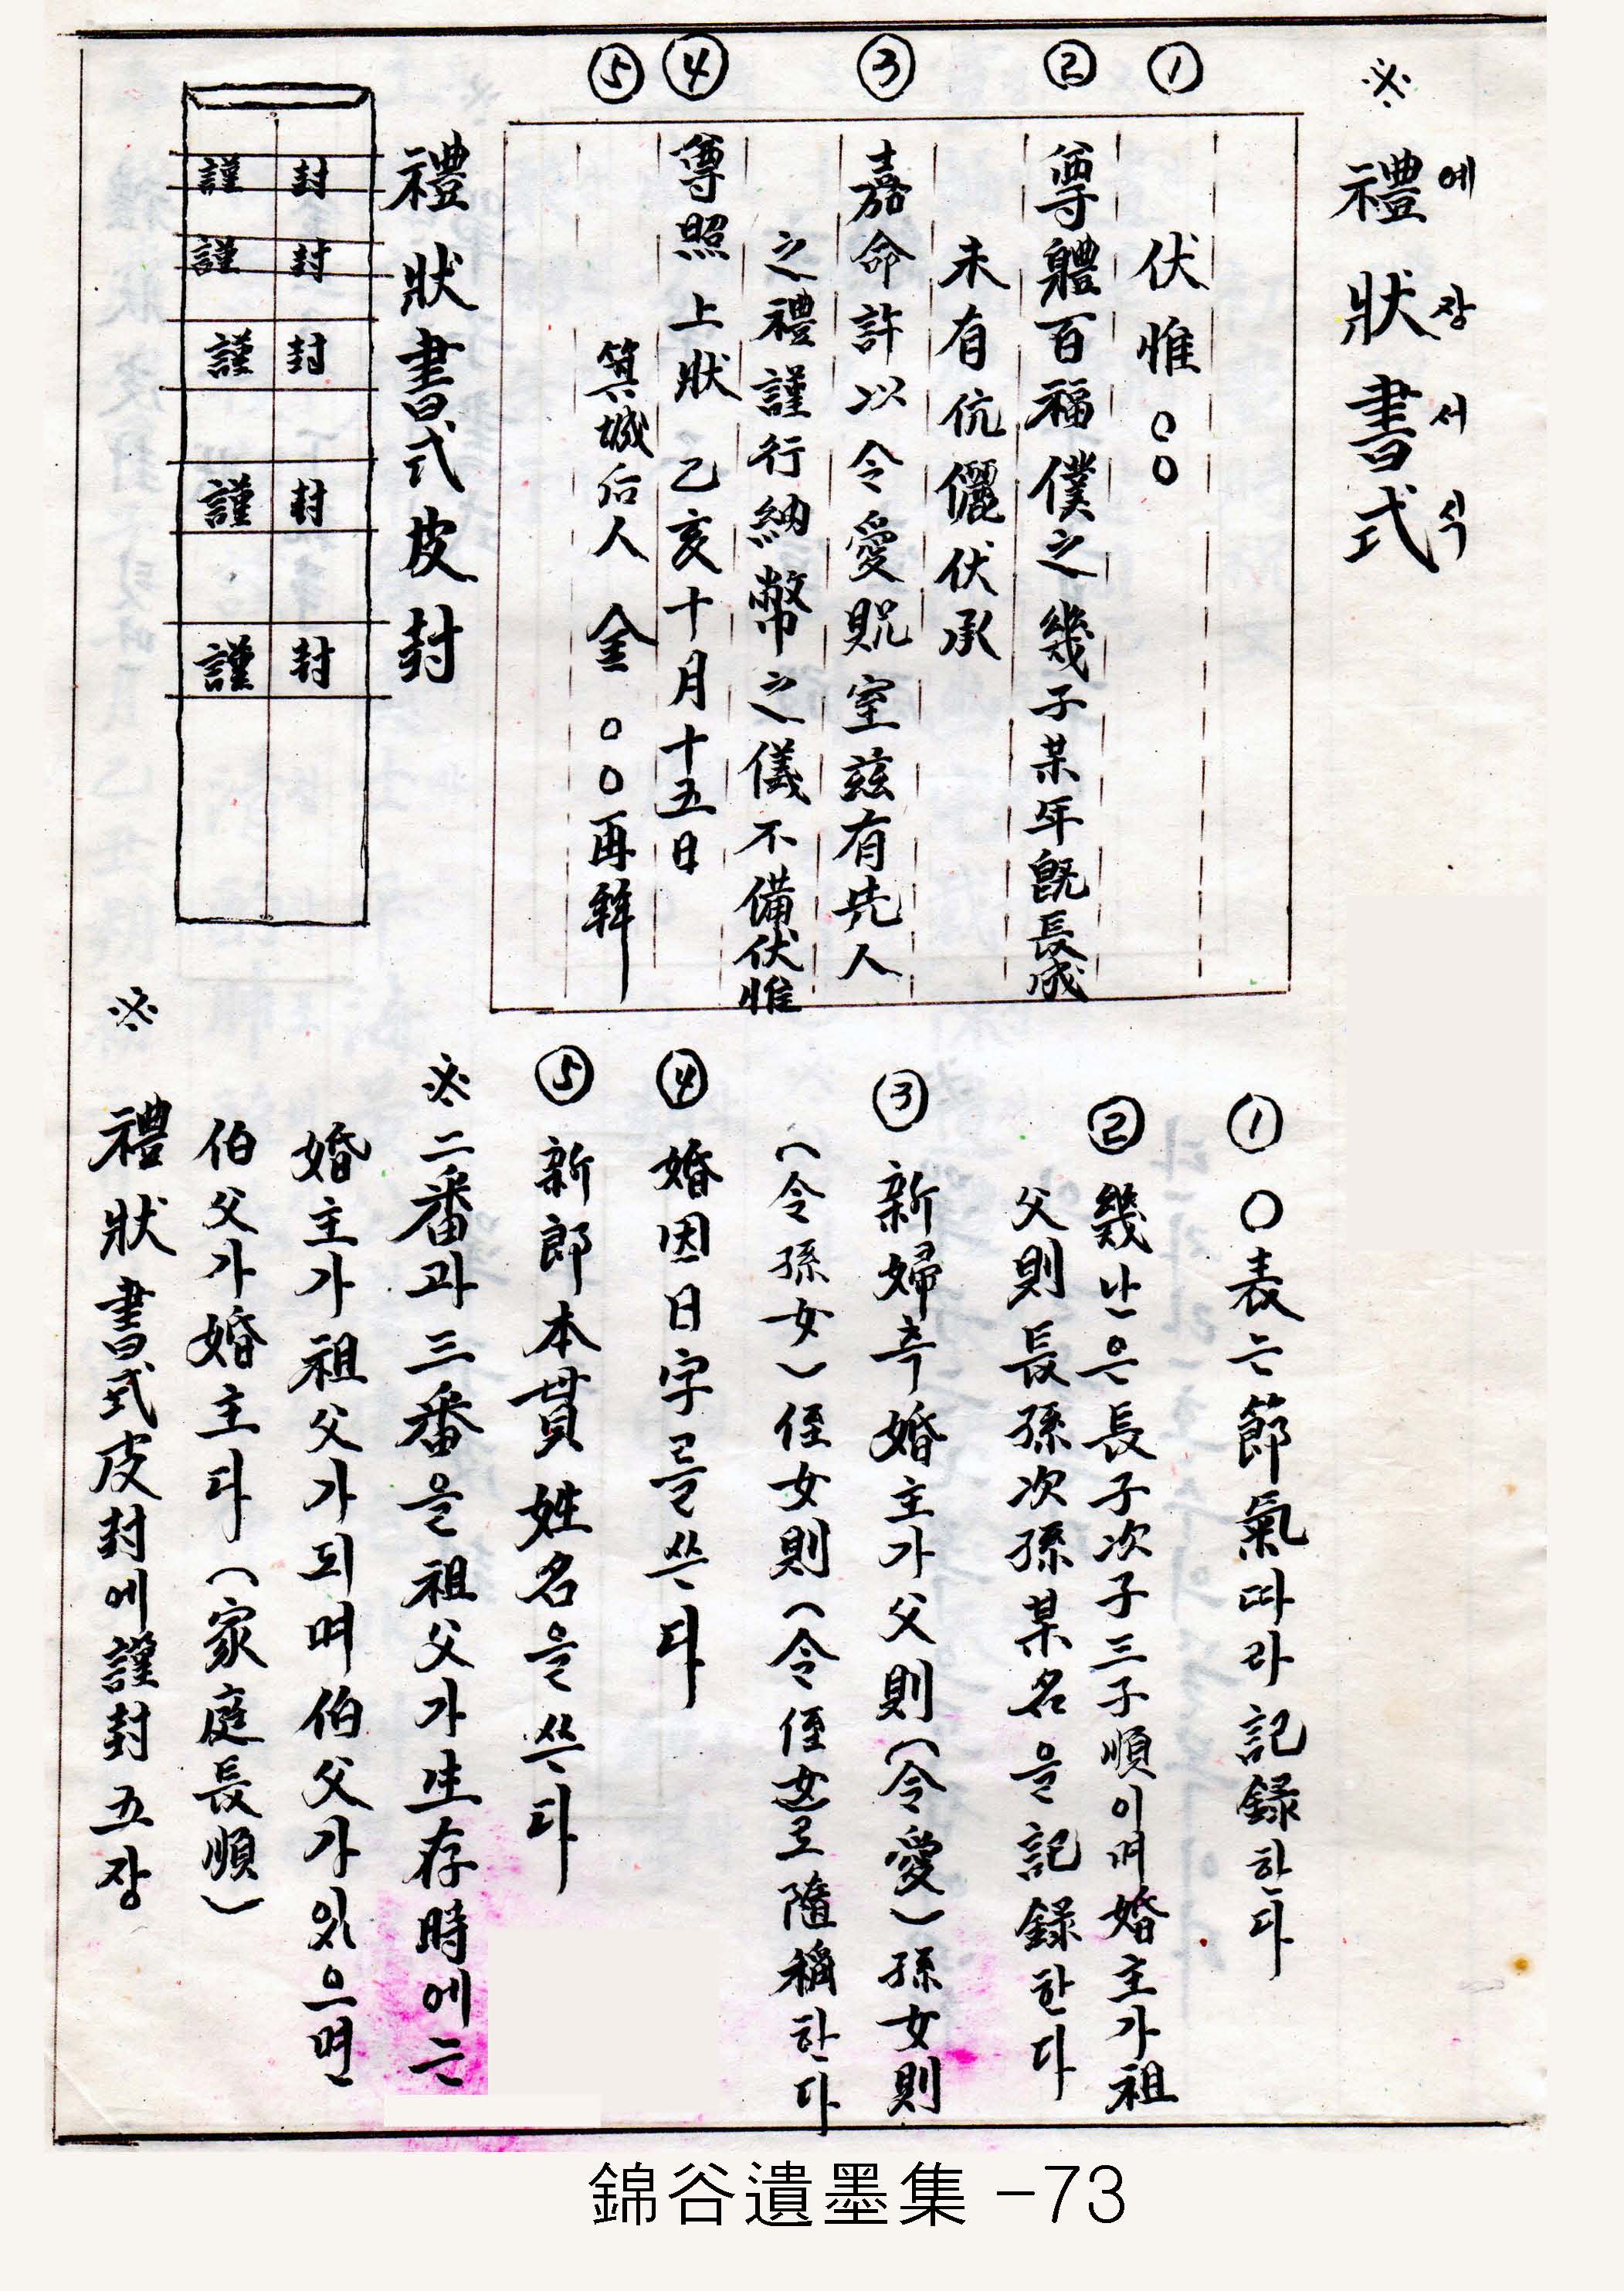 ※ 禮狀書式
예장서식
① 伏惟○○
② 尊軆百福僕之幾子某年旣長成
未有伉儷伏承
③ 嘉命許以令愛貺室玆有先人
之禮謹行納幣之儀不備伏惟
④ 尊照 上狀 乙亥十月十五日
⑤ 箕城后人 金○○再拜
禮狀書式皮封
封 封 封 封 封
謹 謹 謹 謹 謹
① ○表는 節氣따라 記録한다
② 幾난은 長子次子三子順이며 婚主가 祖
父則 長孫次孫某名을 記録한다
③ 新婦측 婚主가 父則(令愛)孫女則
(令孫女)侄女則(令侄女)로 隨稱한다
④ 婚因日字를 쓴다
⑤ 新郎本貫姓名을 쓴다
※ 二番과 三番을 祖父가 生存時에는
婚主가 祖父가 되며 伯父가 있으면
伯父가 婚主다(家庭長順)
※ 禮狀書式皮封에 謹封五장
錦谷遺墨集 -73